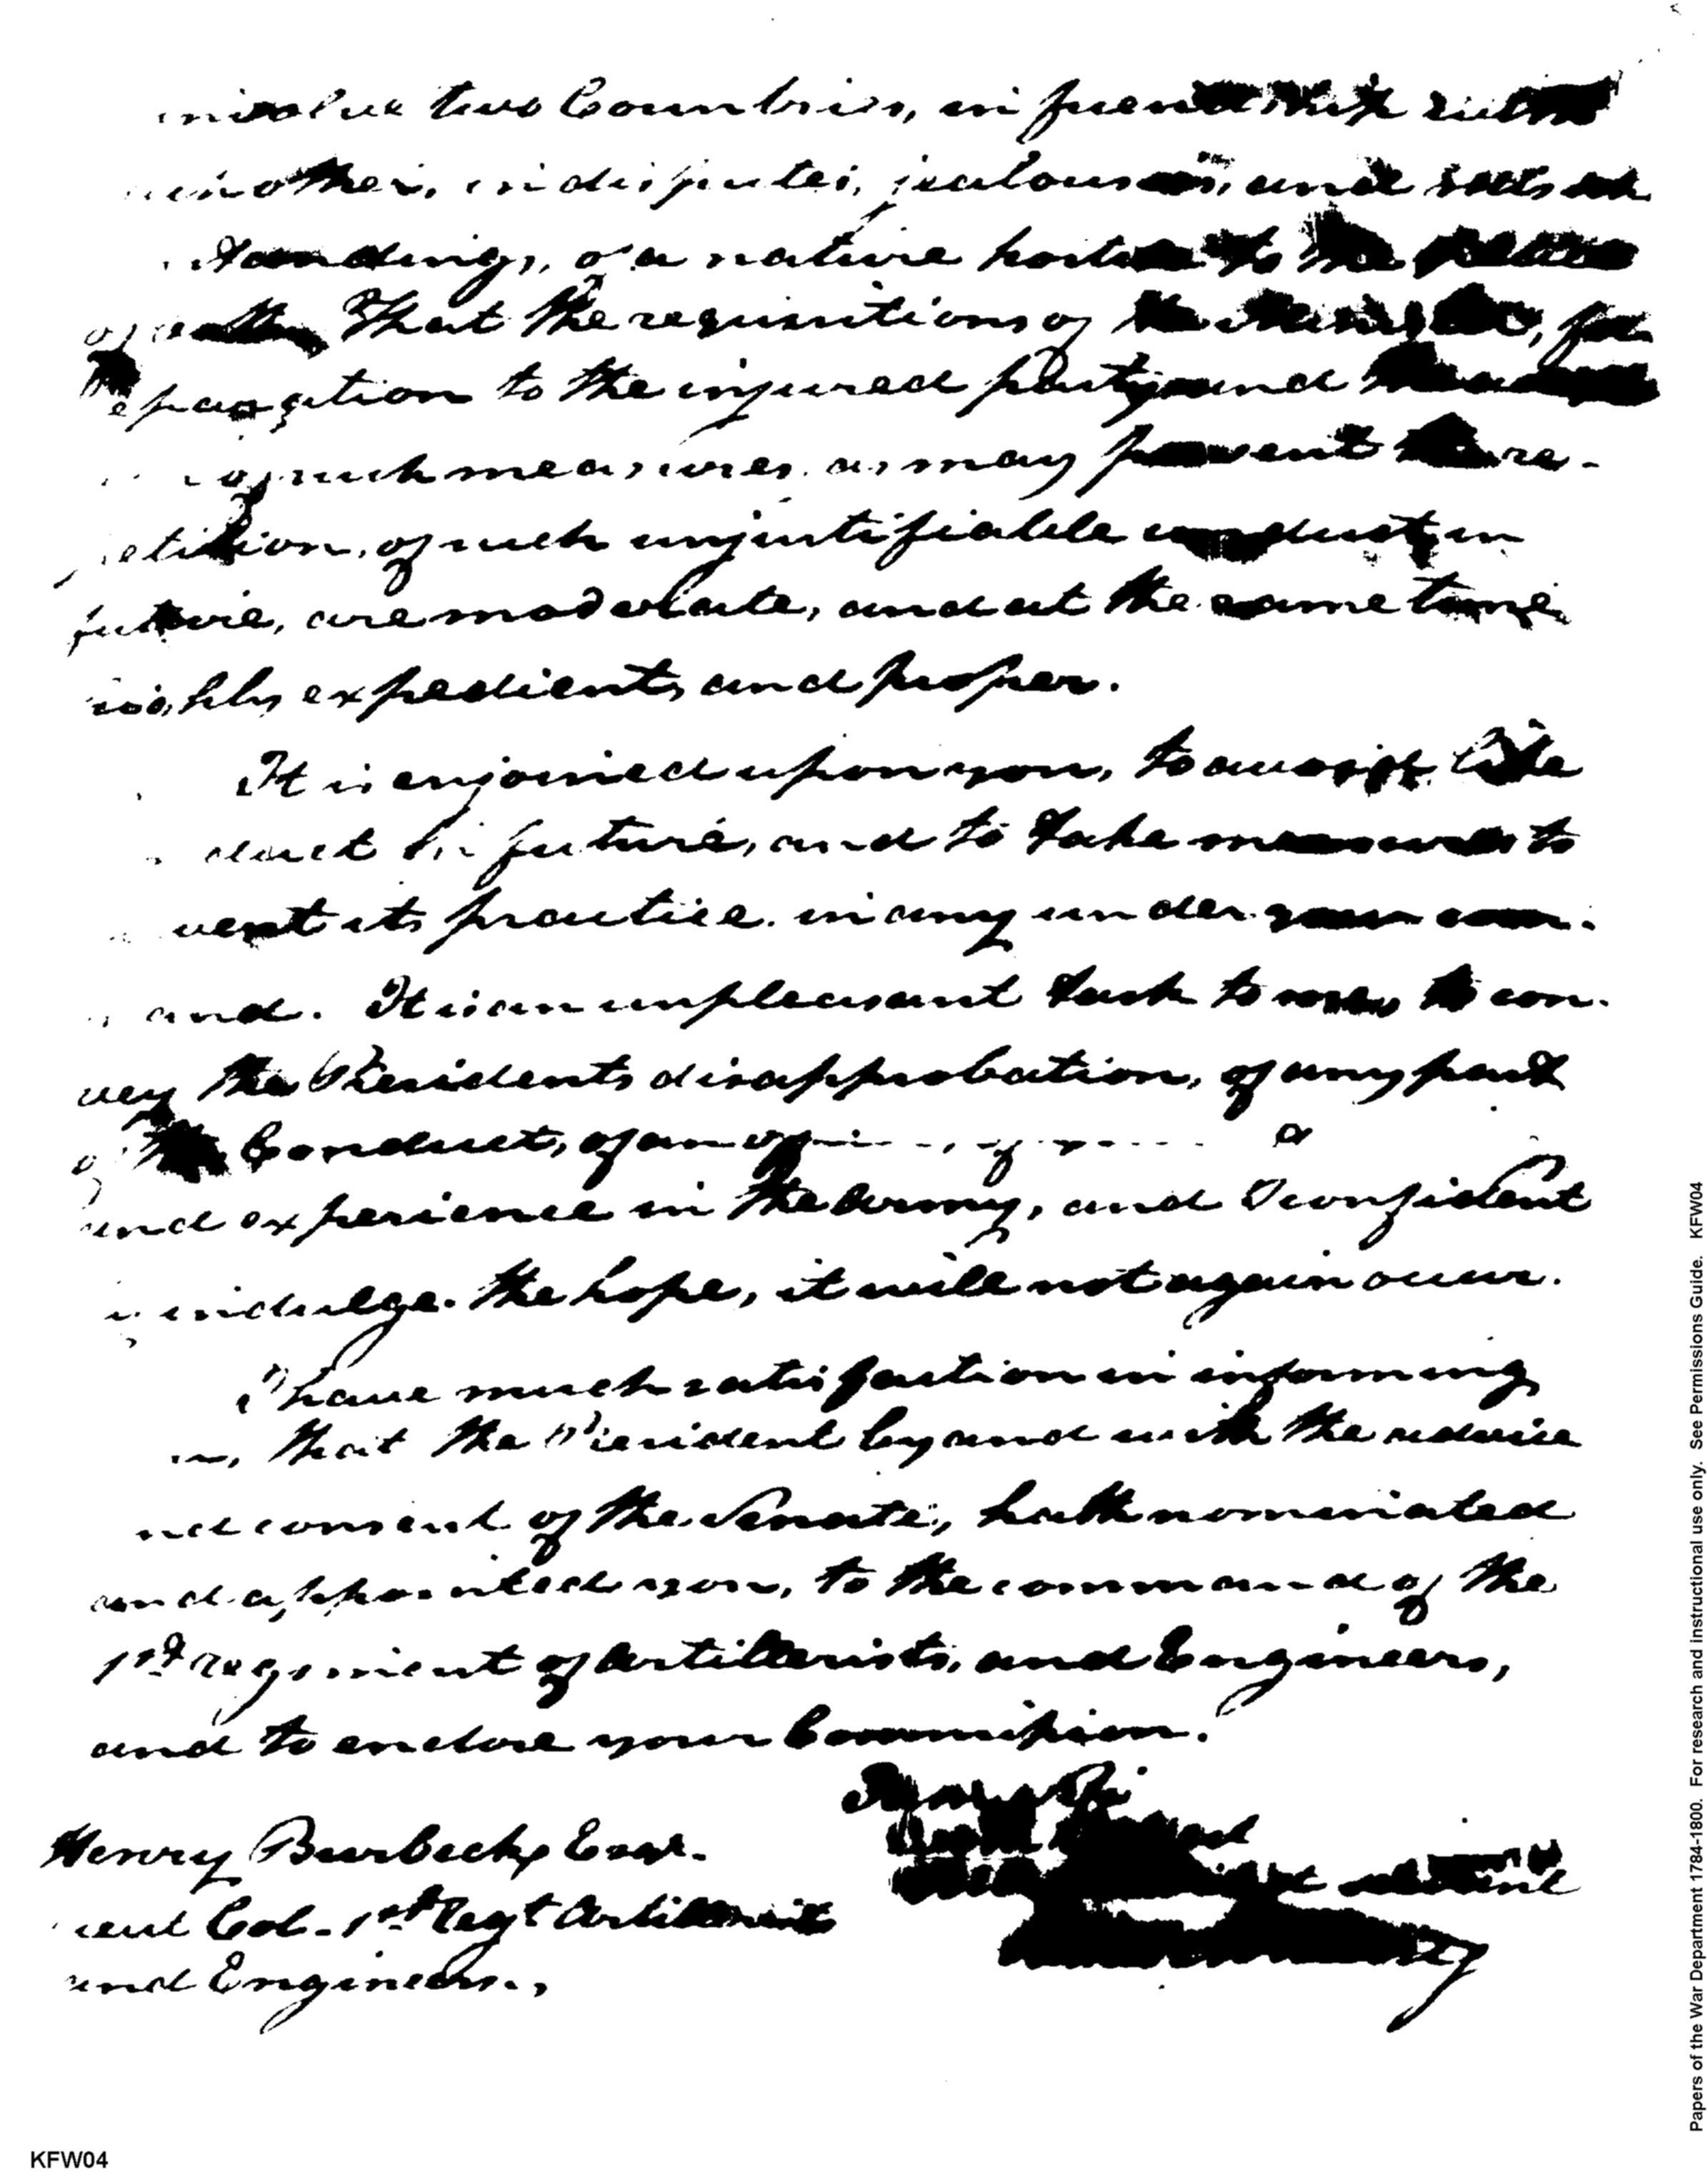 involve two Countries, in friendship with
another, in disputes, jealousies, and
standings, of a nature hostile to the
of That the requisitions of the for
reparation to the injured party and
of such measures as may prevent the re-
petition, of such unjustifiable conduct, in
future, are moderate, and at the same time
highly expedient, and proper.
It is enjoined upon you, to avoid like
duct in future, and to take measures to
vent its practice in any under your com-
and. It is an unpleasant task to to con-
vey the Presidents disapprobation, of any part
of Conduct, of an
and experience in the Army, and I confident
indulge the hope, it will not again occur.
I have much satisfaction in informing
that the President by and with the advice
and consent of the Senate, hath nominated
and appointed you, to the command of the
1st regiment of Artillerists, and Engineers,
and to enclose your Commission.
Henry Burbeck Esqr.
Lieut Col. 1st Regt Artillerists
and Engineers.,
KFW04
Papers of the War Department 1784-1800. For research and instructional use only. See Permissions Guide. KFW04